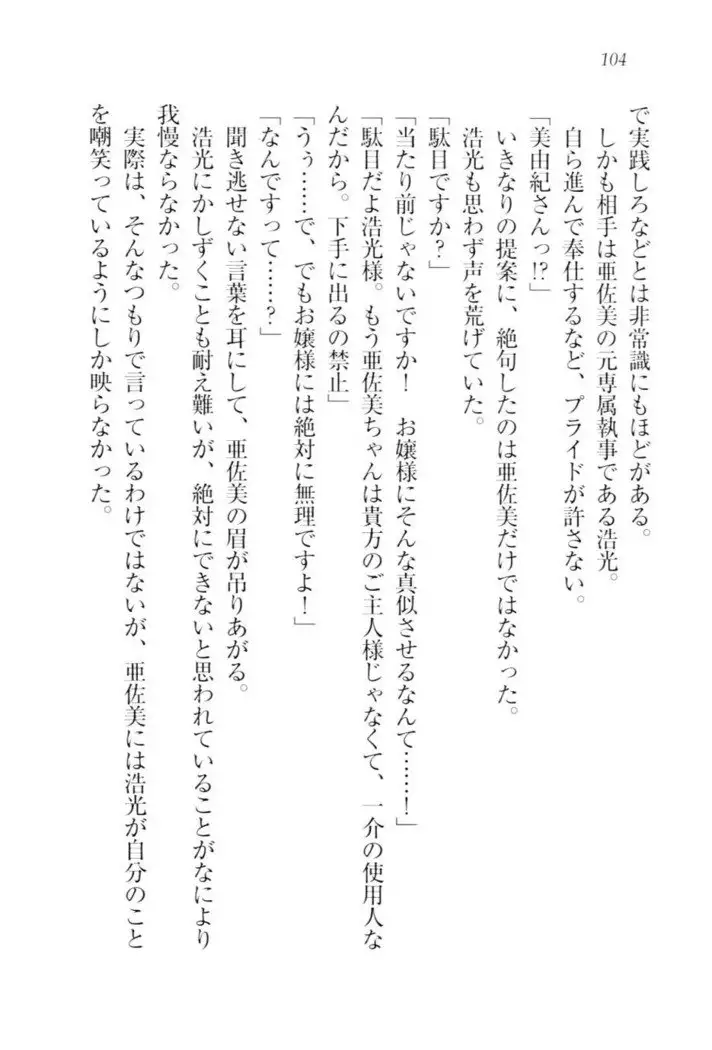 104
で実践しろなどとは非常識にもほどがある。
しかも相手は亜佐美の元専属執事である浩光。
自ら進んで奉仕するなど、プライドが許さない。
「美由紀さんっ!?」
いきなりの提案に、絶句したのは亜佐美だけではなかった。
浩光も思わず声を荒げていた。
「駄目ですか?」
「当たり前じゃないですか! お嬢様にそんな真似させるなんて……!」
「駄目だよ浩光様。もう亜佐美ちゃんは貴方のご主人様じゃなくて、一介の使用人な
んだから。下手に出るの禁止」
「うぅ……で、でもお嬢様には絶対に無理ですよ!」
「なんですって……?」
聞き逃せない言葉を耳にして、亜佐美の眉が吊りあがる。
浩光にかしずくことも耐え難いが、絶対にできないと思われていることがなにより
我慢ならなかった。
実際は、そんなつもりで言っているわけではないが、亜佐美には浩光が自分のこと
を嘲笑っているようにしか映らなかった。